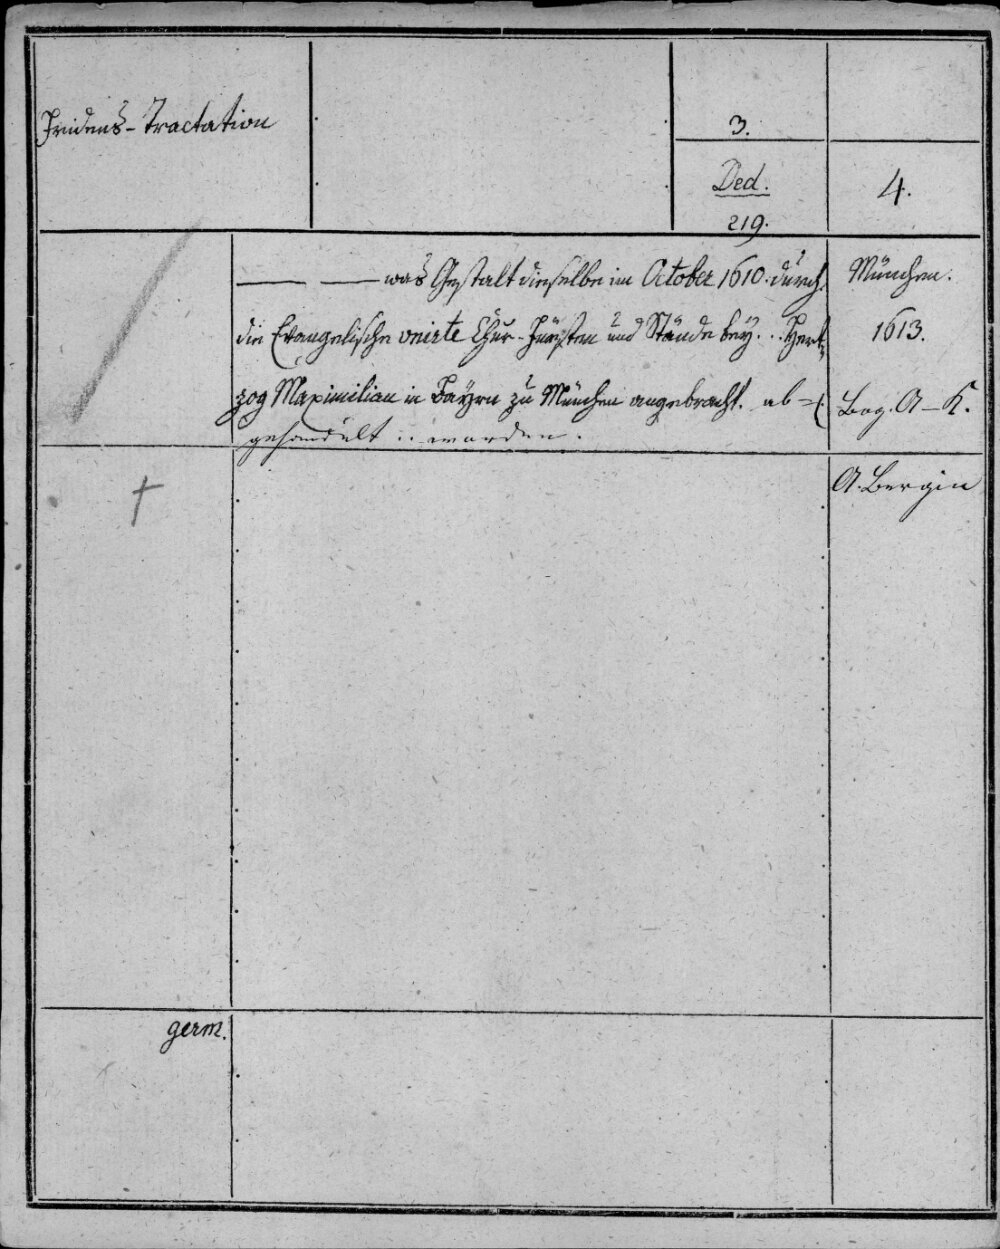 Fridens-Tractation
3.
Ded.
219.
4.
was Gestalt dieselbe im October 1610. durch
die Evangelische vnirte Chur-Fürsten und Stände bey... Hert-
zog Maximilian in Bayrn zu München angebracht. ab=
gehandelt .. worden.
München.
1613.
Bog. A-K.
A. Bergin
germ.